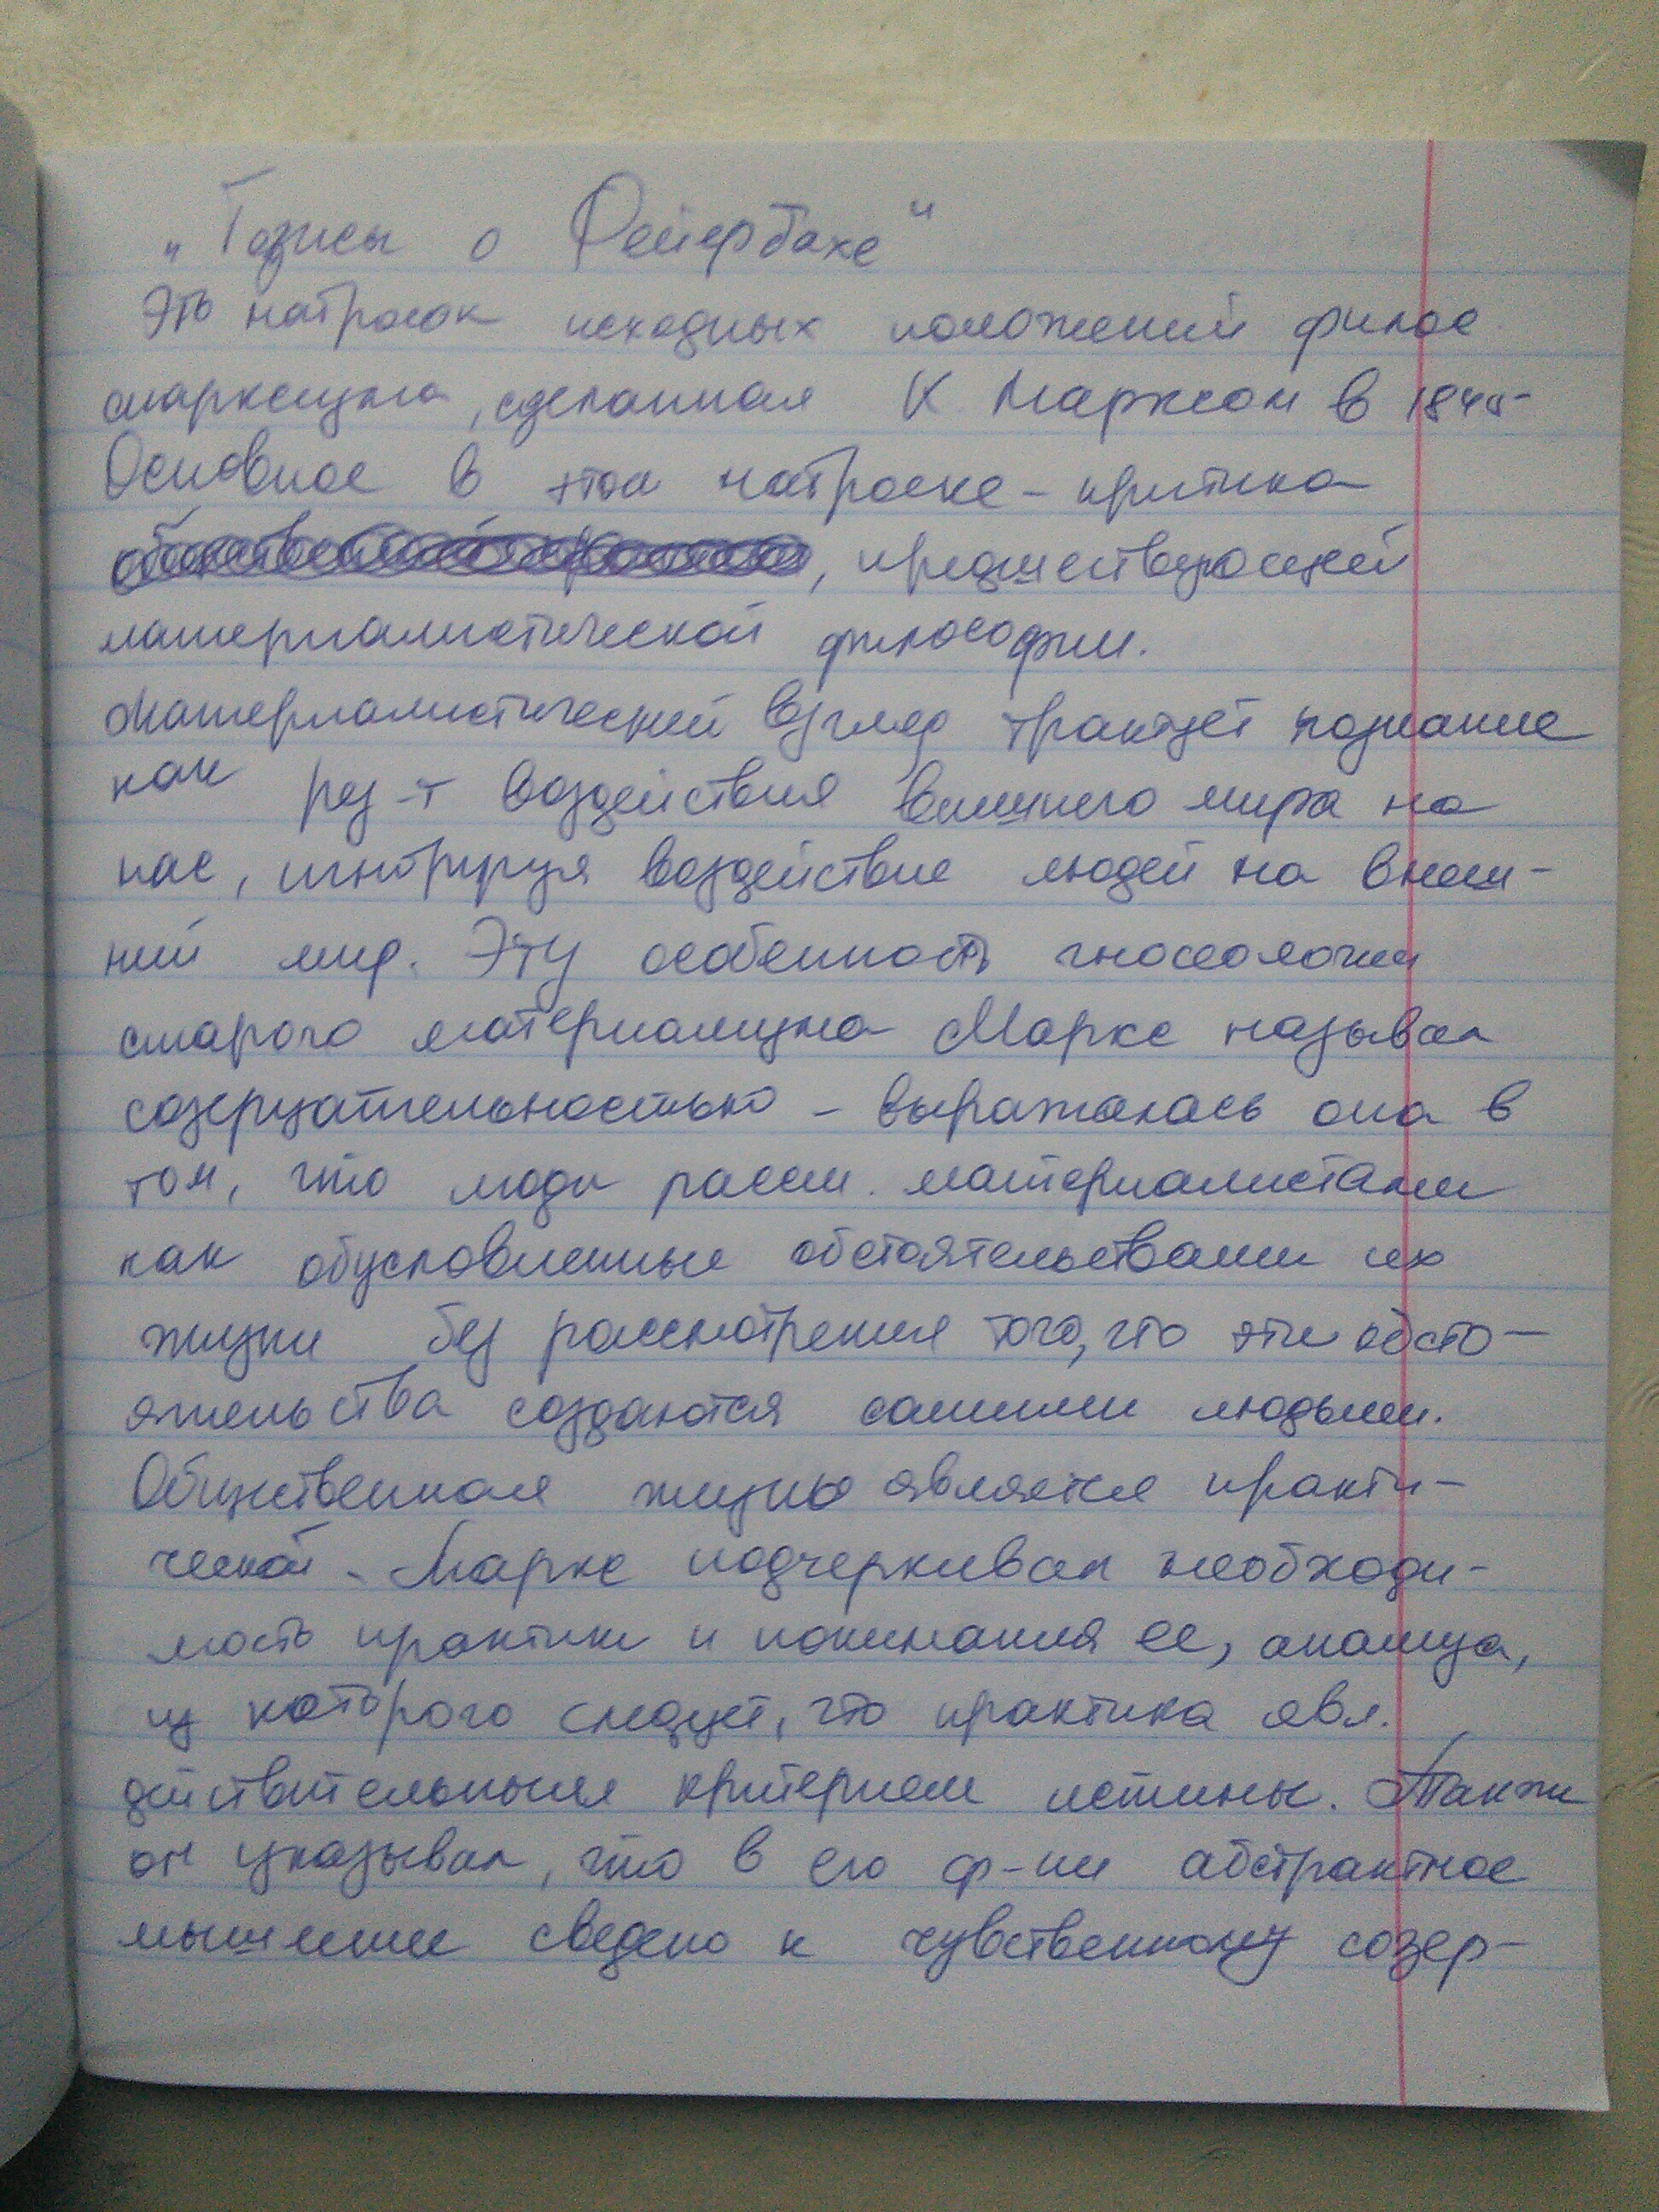 „Тезисы о Фейербахе"
Это набросок исходных положений филос.
марксизма, сделанная К Марксом в 1845
Основное в этом наброске – критика
, предшествующей
материалистической философии.
Материалистический взгляд трактует познание
как рез-т воздействия внешнего мира на
нас, игнорируя воздействие людей на внеш-
ний мир. Эту особенность гносеологии
старого материализма Маркс называл
созерцательностью – выражалась она в
том, что люди рассм. материалистами
как обусловленные обстоятельствами их
жизни без рассмотрения того, что эти обсто-
ятельства создаются самими людьми.
Общественная жизнь является практи-
ческой. Маркс подчеркивал необходи-
мость практики и понимания ее, анализа,
из которого следует, что практика явл.
действительным критерием истины. Также
он указывал, что в его ф-ии абстрактное
мышление сведено к чувственному созер-